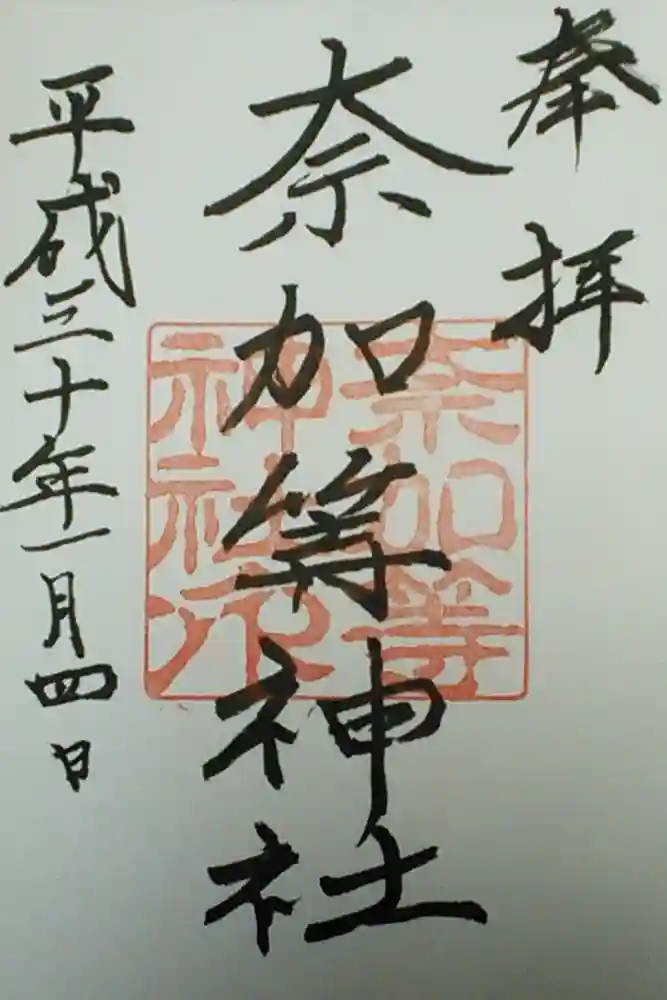 奉拝
奈加等神社
奈加等
神社印
平成三十年一月四日